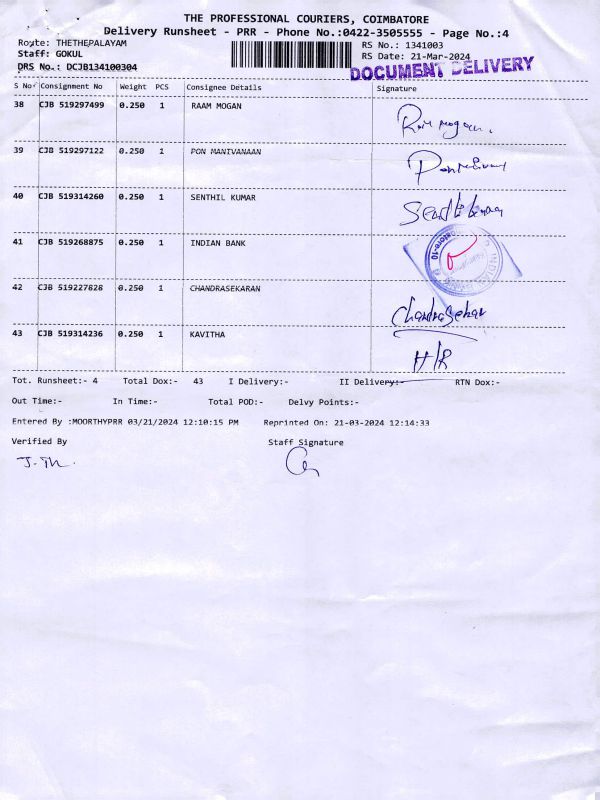 THE PROFESSIONAL COURIERS, COIMBATORE
Delivery Runsheet - PRR - Phone No.:0422-3505555 - Page No.:4
Route: THETHEPALAYAM
RS No.: 1341003
Staff: GOKUL
RS Date: 21-Mar-2024
DRS No.: DCJB134100304
DOCUMENT DELIVERY
S No Consignment No Weight PCS Consignee Details Signature
38 CJB 519297499 0.250 1 RAAM MOGAN
Ram mogan.
39 CJB 519297122 0.250 1 PON MANIVANAAN
40 CJB 519314260 0.250 1 SENTHIL KUMAR
41 CJB 519268875 0.250 1 INDIAN BANK
42 CJB 519227828 0.250 1 CHANDRASEKARAN
ChandraSekar
43 CJB 519314236 0.250 1 KAVITHA
H/R
Tot. Runsheet:- 4 Total Dox:- 43 I Delivery:- II Delivery:- RTN Dox:-
Out Time:- In Time:- Total POD:- Delvy Points:-
Entered By :MOORTHYPRR 03/21/2024 12:10:15 PM Reprinted On: 21-03-2024 12:14:33
Verified By Staff Signature